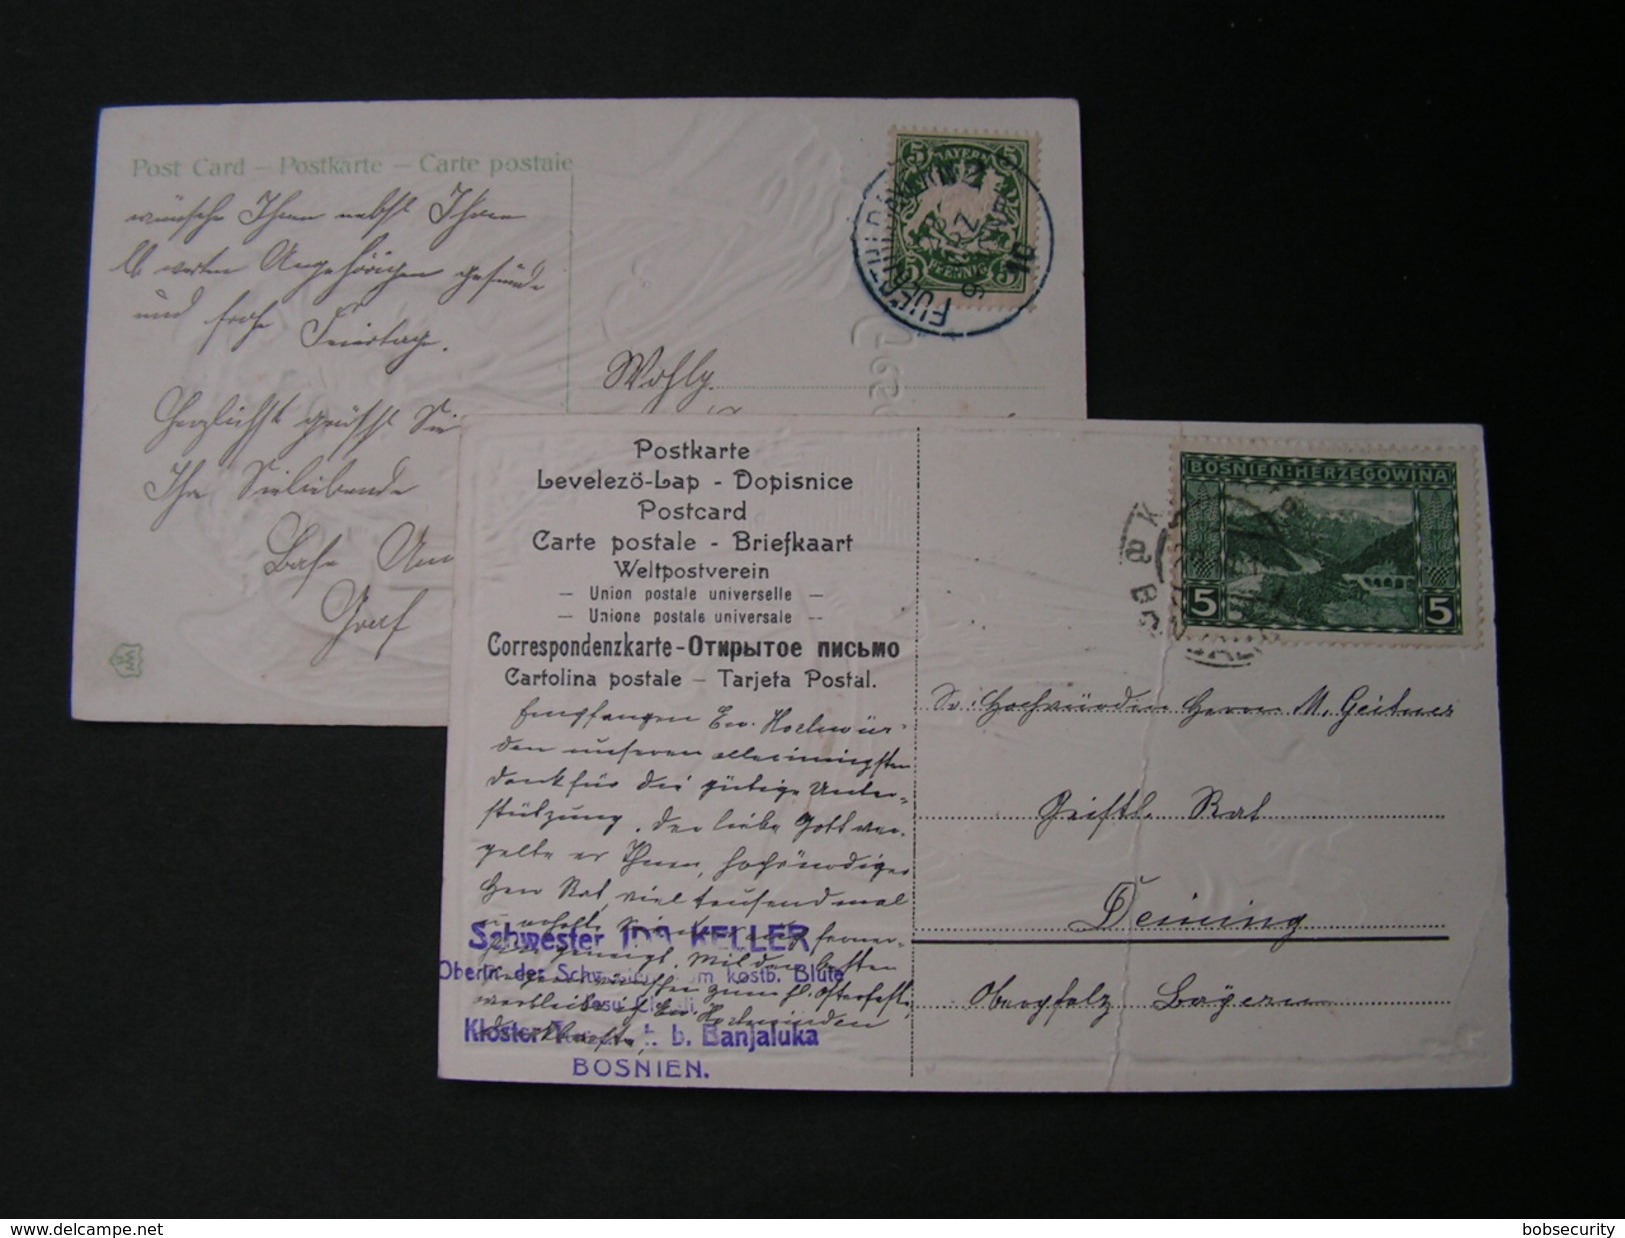 Post Card – Postkarte – Carte postale
wünsche Ihnen nebst Ihren
lb. werten Angehörigen gesunde
und frohe Feiertage.
Herzlichst grüßt Sie
Ihre Sieliebende
Graf
Wohlg.
BAYERN
5 5
PFENNIG
5 5
Postkarte
Levelező-Lap - Dopisnice
Postcard
Carte postale - Briefkaart
Weltpostverein
— Union postale universelle —
— Unione postale universale —
Correspondenzkarte - Открытое письмо
Cartolina postale – Tarjeta Postal.
Empfangen Ew. Hochwür-
den unseren allerinnigsten
Dank für die gütige Unter-
stützung. Der liebe Gott ver-
gelte es Ihnen, hochwürdiger
Herr Rat, viel tausendmal
Schwester IDA KELLER,
Oberin der Schwestern vom kostb. Blute
Jesu Christi
Kloster b. Banjaluka
BOSNIEN.
BOSNIEN-HERZEGOWINA
5 5
Sr. Hochwürden Herrn M. Geitner
Geistl. Rat
Deining
Oberpfalz Bayern
www.delcampe.net
bobsecurity